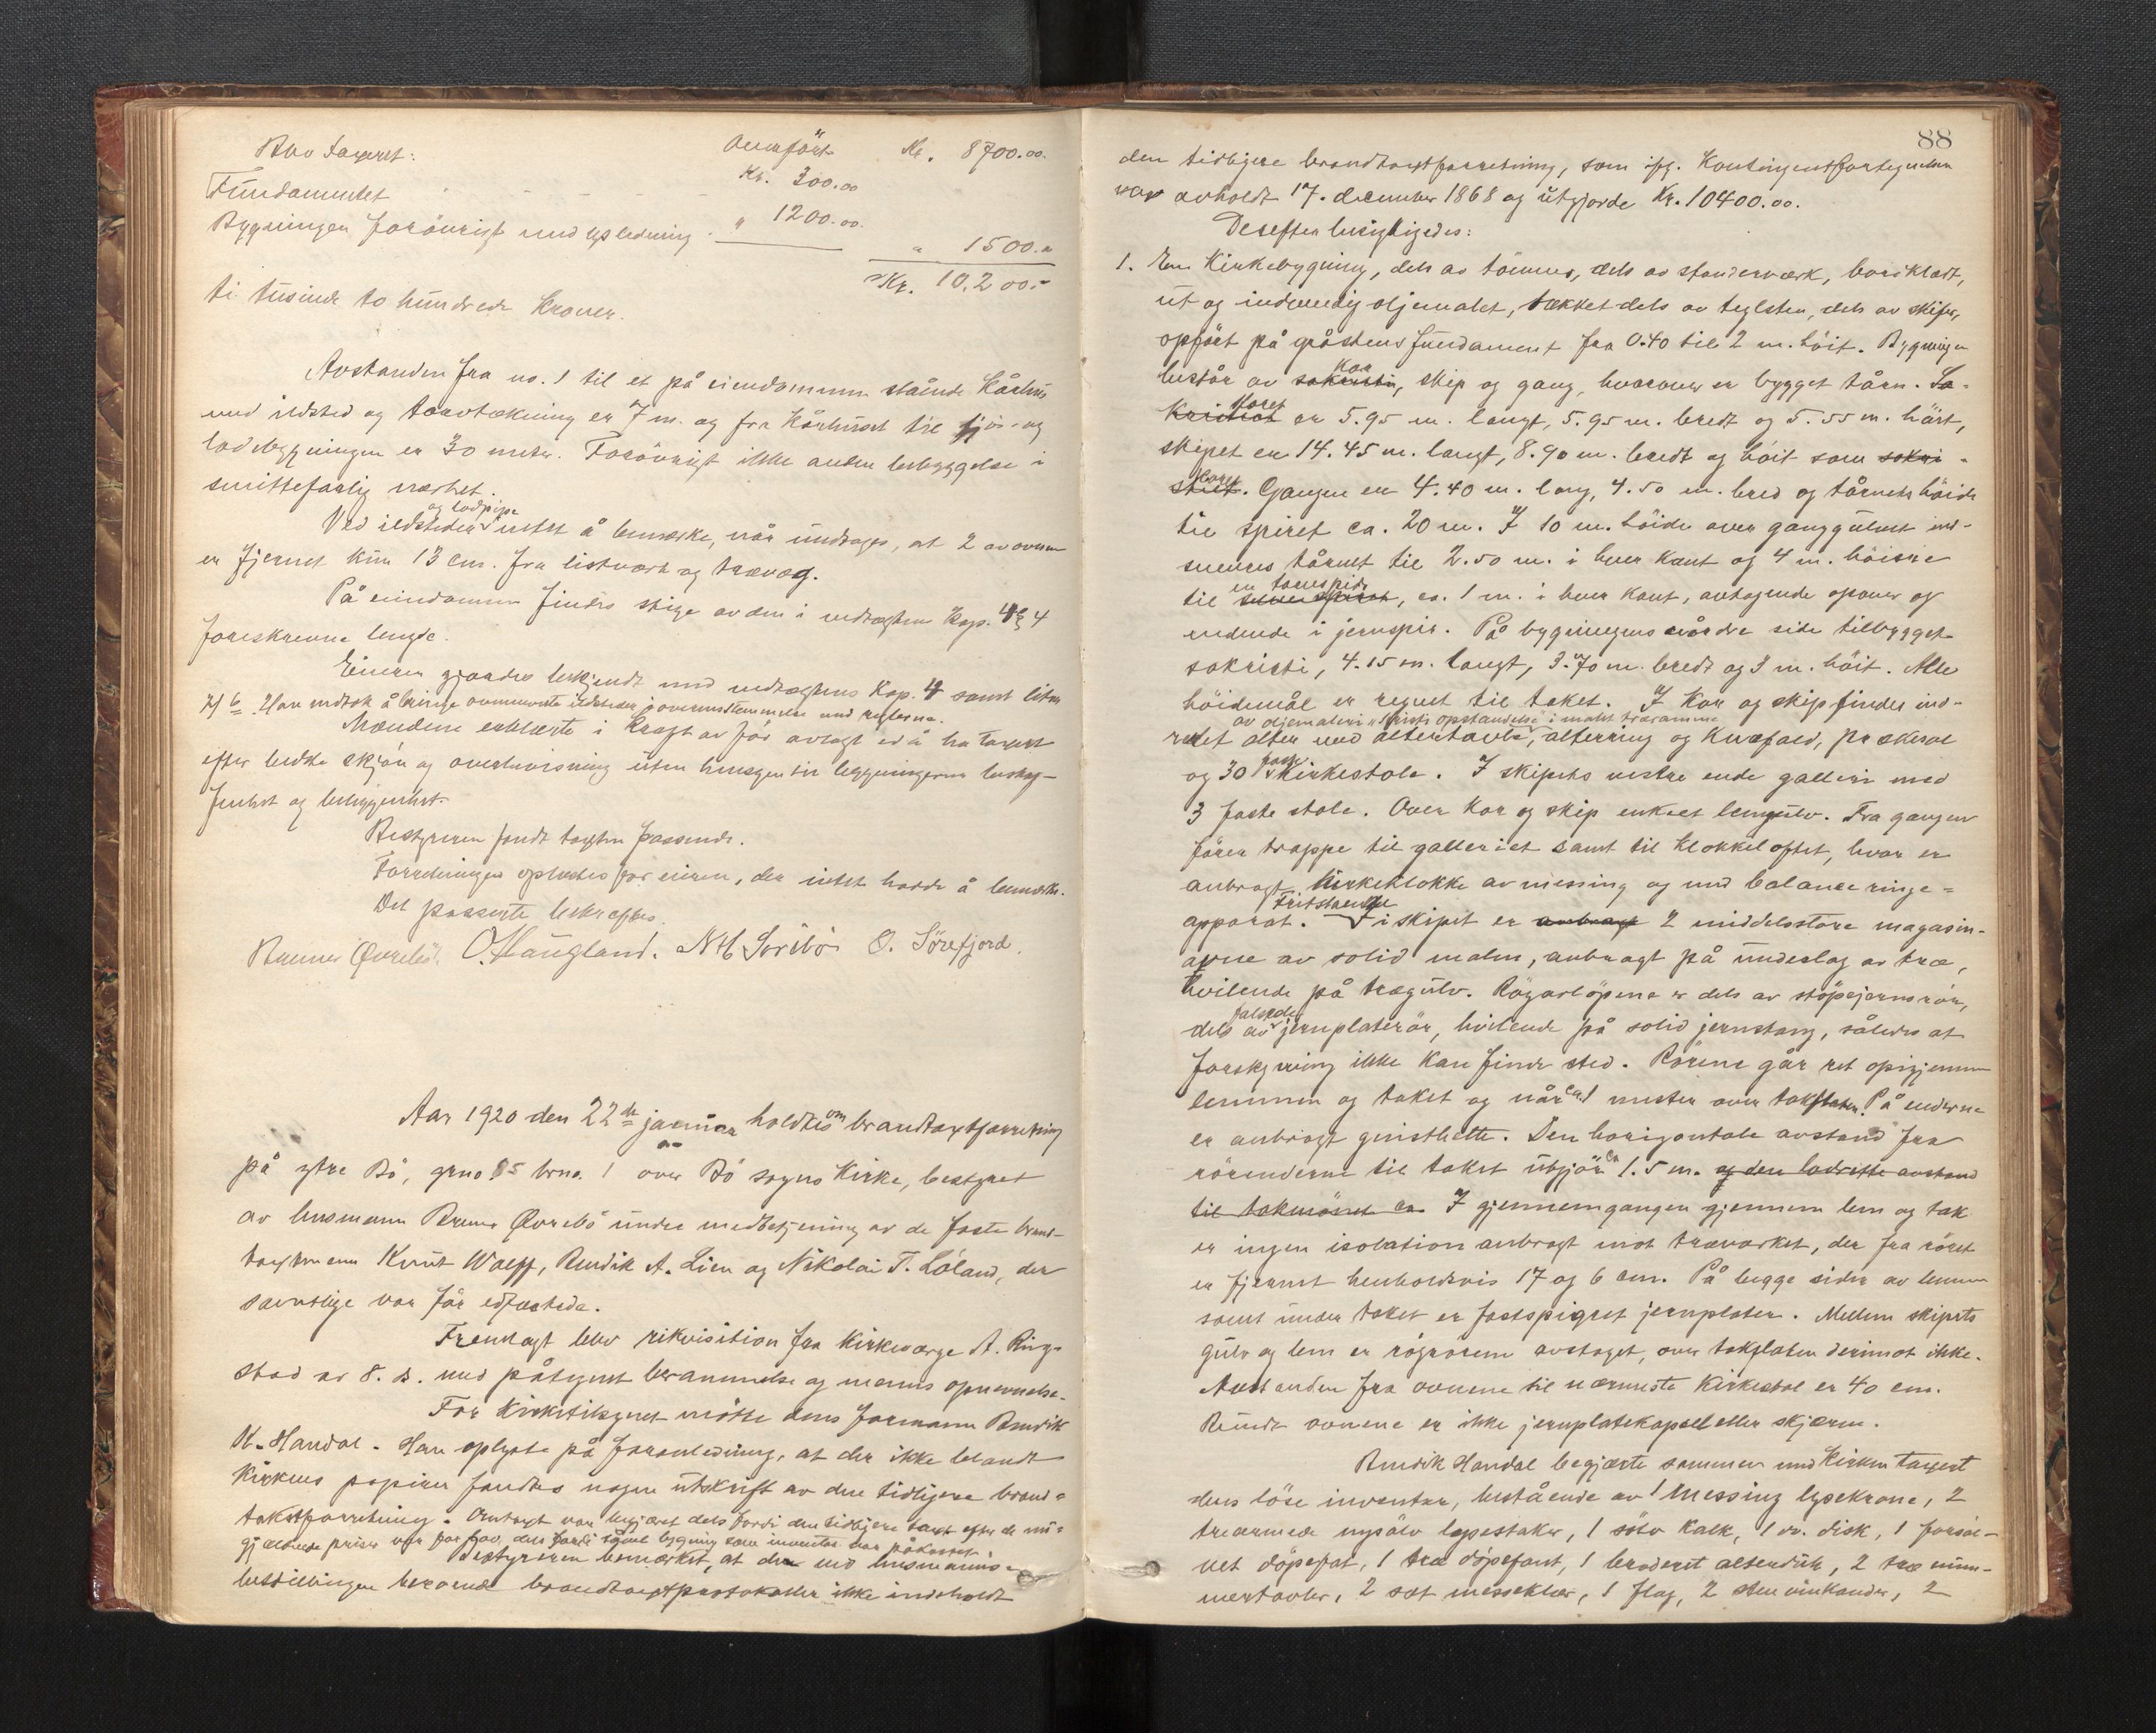 Blev taxeret: Overført Kr. 8700.00
Fundamentet Kr. 300.00
Bygningen forøvrigt med lysledning " 1200.00
" 1500.00
Kr. 10,200.-
ti tusinde to hundrede kroner.
Avstanden fra no. 1 til et på eiendommen stående kårhus
med ildsted og torvtækning er 7 m. og fra kårhuset til fjøs- og
ladebygningen er 30 meter. Forøvrigt ikke anden bebyggelse i
smittefarlig nærhet.
Ved ildsteder og lodpipe intet å bemerke, når undtages, at 2 av ovnene
er fjernet kun 13 cm. fra listverk og trævæg.
På eiendommen findes stige av den i vedtægtene Kap. 4 § 4
foreskrevne lengde.
Eieren gjordes bekjendt med vedtægtens Kap. 4 samt litra
Han vedtok å bringe ovennevnte ildsteder i overensstemmelse med reglerne.
Mændene erklærte i kraft av før avlagt ed å ha taxert
efter bedste skjøn og overbevisning uten hensyn til bygningernes beskaf-
fenhet og beliggenhet.
Bestyreren fandt taxten passende.
Forretningen oplæstes for eieren, der intet hadde å bemerke.
Det passerte bekræftes.
Rasmus Øvrebö. O. Haugland. N H Sørebö O. Sörefjord.
Aar 1920 den 22de januar holdtes om brandtaxtforretning
på ytre Bö, grno 85 brno. 1 over Bö sogns Kirke, bestyret
av lensmann Rasmus Øvrebö under medbetjening av de faste brand-
taxtmenn Knut Wolff, Bendik A. Lien og Nikolai T. Löland, der
samtlige var för edfæstede.
Fremlagt blev rikvisition fra Kirkeværge A. Ring-
stad av 8. ds. med påtegnet berammelse og menns opnevnelse.
For Kirketilsynet møtte dens formann Bendik
K. Handal. Han oplyste på foranledning, at der ikke blandt
Kirkens papirer fandtes nogen utskrift av den tidligere brand-
takstforretning. Omtaxt var begjæret dels fordi den tidligere taxt efter de nu-
gjældende priser var for lav, dels fordi såvel bygning som inventar var påkostet
Bestyreren bemerket, at de ved lensmanns-
bestillingen beroende brandtaxtprotokoller ikke indeholdt
88
den tidligere brandtaxtforretning, som ifg. Kontingentfortegnelsen
var avholdt 17. december 1868 og utgjorde Kr. 10400.00.
Derefter besigtigedes:
1. En Kirkebygning, dels av tömmer, dels av stenderværk, bordklædt,
ut og indvendig oljemalet, tækket dels av teglsten, dels av skifer,
opfört på gråstens fundament fra 0.40 til 2 m. höit. Bygningen
består av sakristi, Kor skip og gang, hvorover er bygget tårn. Sa-
kristiet Koret er 5.95 m. langt, 5.95 m. bredt og 5.55 m. höit,
skipet er 14.45 m. langt, 8.90 m. bredt og höit som sakri-
stiet Koret. Gangen er 4.40 m. lang, 4.50 m. bred og tårnets höide
til spiret ca. 20 m. I 10 m. höide over ganggulvet ind-
snevres tårnet til 2.50 m. i hver kant og 4 m. höiere
til en tårnspids, ca. 1 m. i hver kant, avtagende opover og
endende i jernspir. På bygningens nordre side tilbygget
sakristi, 4.15 m. langt, 3.70 m. bredt og 3 m. höit. Alle
höidemål er regnet til taket. I Kor og skip findes ind-
av oljemaleri "Kristi opstandelse" i malet træramme
redet alter med altertavle, alterring og knæfald, prækestol
og 30 faste Kirkestole. I skipets vestre ende galleri med
3 faste stole. Over Kor og skip enkelt lemgulv. Fra gangen
förer trappe til galleriet samt til klokkeloftet, hvor er
anbragt kirkeklokke av messing og med balance ringe-
apparat. Fritstaaende i skipet er anbragt 2 middelsstore magasin-
ovne av solid malm, anbragt på underlag av træ,
hvilende på trægulv. Rögavlöpene er dels av stöpejernsrör,
dels av falsede jernplaterör, hvilende på solid jernstang, således at
forskyvning ikke kan finde sted. Rörene går ret op igjennem
lemmen og taket og når ca. 1 meter over takflaten. På enderne
er anbragt gnisthette. Den horizontale avstand fra
rörenderne til taket utgjör ca. 1.5 m. og den lodrette avstand
til takmönet ca. I gjennemgangen gjennem lem og tak
er ingen isolation anbragt mot træverket, der fra röret
er fjernet henholdsvis 17 og 6 cm. På begge sider av lemmen
samt under taket er fastspigret jernplater. Mellem skipets
gulv og lem er rögrörene avstaget, over takflaten derimot ikke.
Avstanden fra ovnene til nærmeste Kirkestol er 40 cm.
Rundt ovnene er ikke jernplatekapsel eller skjærm.
Bendik Handal begjærte sammen med Kirken taxert
dens löse inventar, bestående av 1 messing lysekrone, 2
trearmede nysölv lysestaker, 1 sölv kalk, 1 do. disk, 1 forsöl-
vet döpefat, 1 træ döpefont, 1 broderet alterduk, 2 træ num-
mertavler, 2 sæt messeklær, 1 flag, 2 sten vinkander, 2